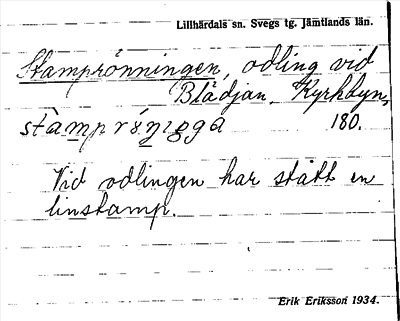 Lillhärdals sn. Svegs tg. Jämtlands län.
Stamprönningen, odling vid
Blådjan. Kyrkbyn,
180.
Vid odlingen har stått en
linstamp.
Erik Eriksson 1934.